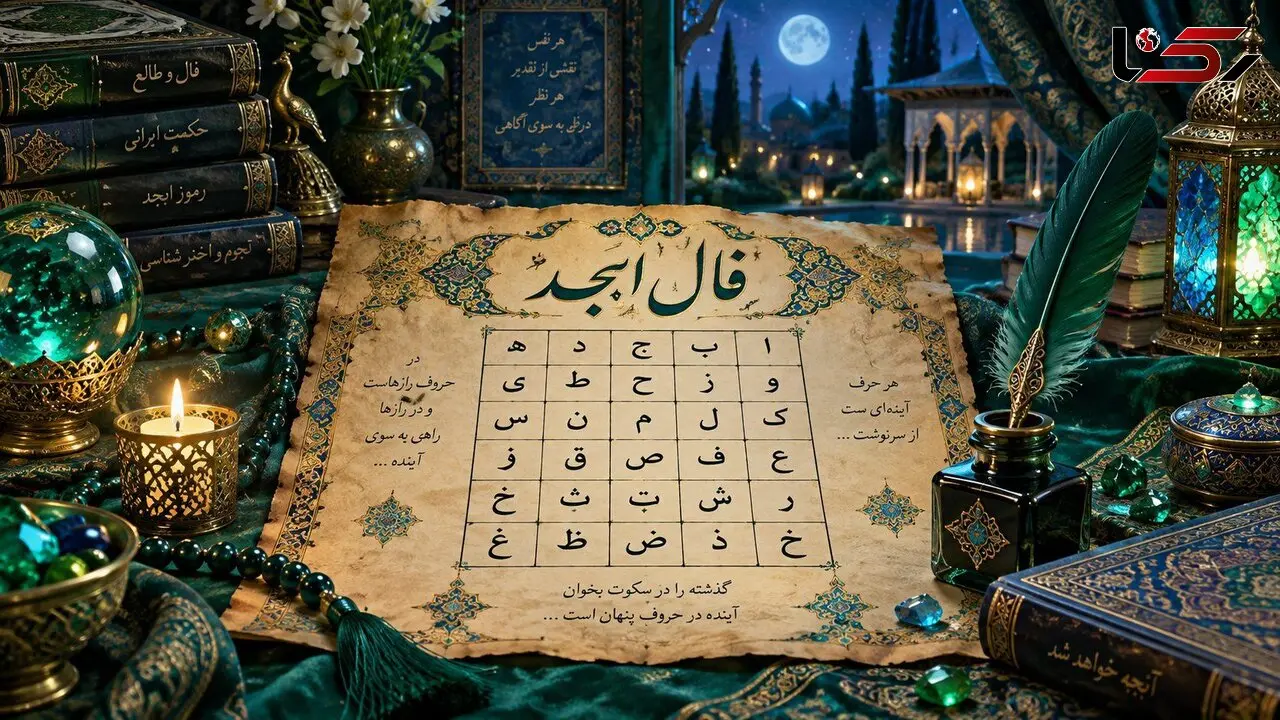 رکنا
فال و طالع
حکمت ایرانی
رموز ابجد
نجوم و اخنر شناسی
هر نفس
نقشی از تقدیر
هر نظر
به سوی آگاهی
فال ابجد
ا ب ج د ه
و ز ح ط ی
ک ل م ن س
ع ف ص ق ز
ر ش ت ث خ
خ ذ ض ظ غ
هر حرف
آینه‌ای ست
از سرنوشت ...
در
حروف رازهاست
و در رازها
راهی به سوی
آینده ...
گذشته را در سکوت بخوان
آینده در حروف پنهان است ...
آنچه خواهد شد